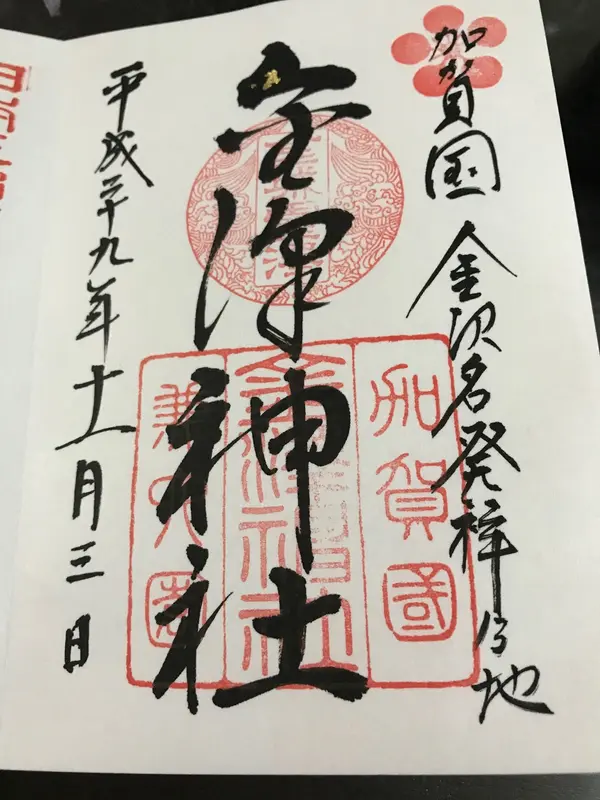 加賀国 金沢名発祥乃地
金澤神社
平成二十九年十一月三日
加賀國
金澤神社
兼六園